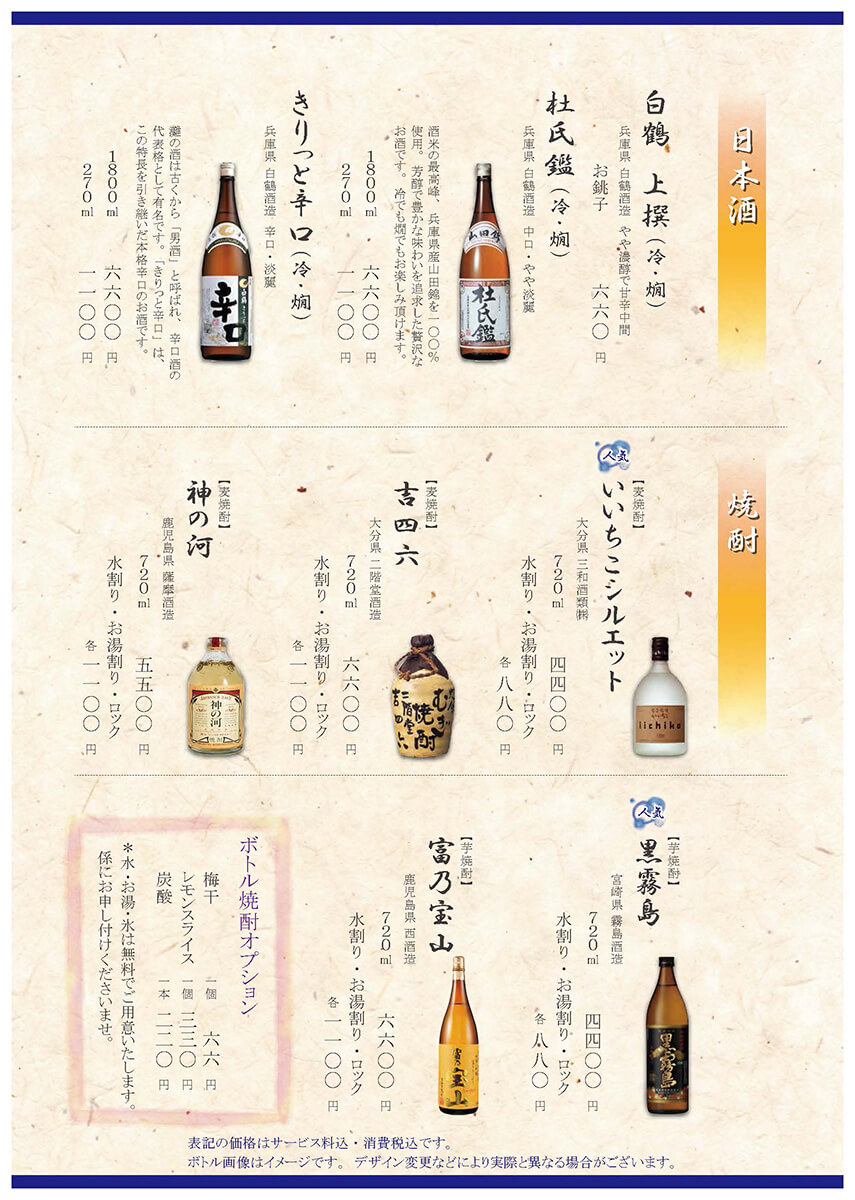 日本酒
白鶴 上撰(冷・燗)
兵庫県 白鶴酒造 やや濃醇で甘辛中間
お銚子 六六〇円
杜氏鑑(冷・燗)
兵庫県 白鶴酒造 中口・やや淡麗
山田錦
杜氏鑑
酒米の最高峰、兵庫県産山田錦を一〇〇%
使用。芳醇で豊かな味わいを追求した贅沢な
お酒です。冷でも燗でもお楽しみ頂けます。
1800ml 六六〇〇円
270ml 一一〇〇円
きりっと辛口(冷・燗)
兵庫県 白鶴酒造 辛口・淡麗
白鶴
辛口
灘の酒は古くから「男酒」と呼ばれ、辛口酒の
代表格として有名です。「きりっと辛口」は、
この特長を引き継いだ本格辛口のお酒です。
1800ml 六六〇〇円
270ml 一一〇〇円
焼酎
人気
【麦焼酎】
いいちこシルエット
大分県 三和酒類㈱
720ml 四四〇〇円
水割り・お湯割り・ロック
各 八八〇円
いいちこ
iichiko
【麦焼酎】
吉四六
大分県 二階堂酒造
720ml 六六〇〇円
水割り・お湯割り・ロック
各 一一〇〇円
むぎ
焼酎
二階堂
吉四六
【麦焼酎】
神の河
鹿児島県 薩摩酒造
720ml 五五〇〇円
水割り・お湯割り・ロック
各 一一〇〇円
神の河
人気
【芋焼酎】
黒霧島
宮崎県 霧島酒造
720ml 四四〇〇円
水割り・お湯割り・ロック
各 八八〇円
黒霧島
【芋焼酎】
富乃宝山
鹿児島県 西酒造
720ml 六六〇〇円
水割り・お湯割り・ロック
各 一一〇〇円
宝山
ボトル焼酎オプション
梅干 一個 六六円
レモンスライス 一個 三三〇円
炭酸 一本 二二〇円
*水・お湯・氷は無料でご用意いたします。
係にお申し付けくださいませ。
表記の価格はサービス料込・消費税込です。
ボトル画像はイメージです。 デザイン変更などにより実際と異なる場合がございます。